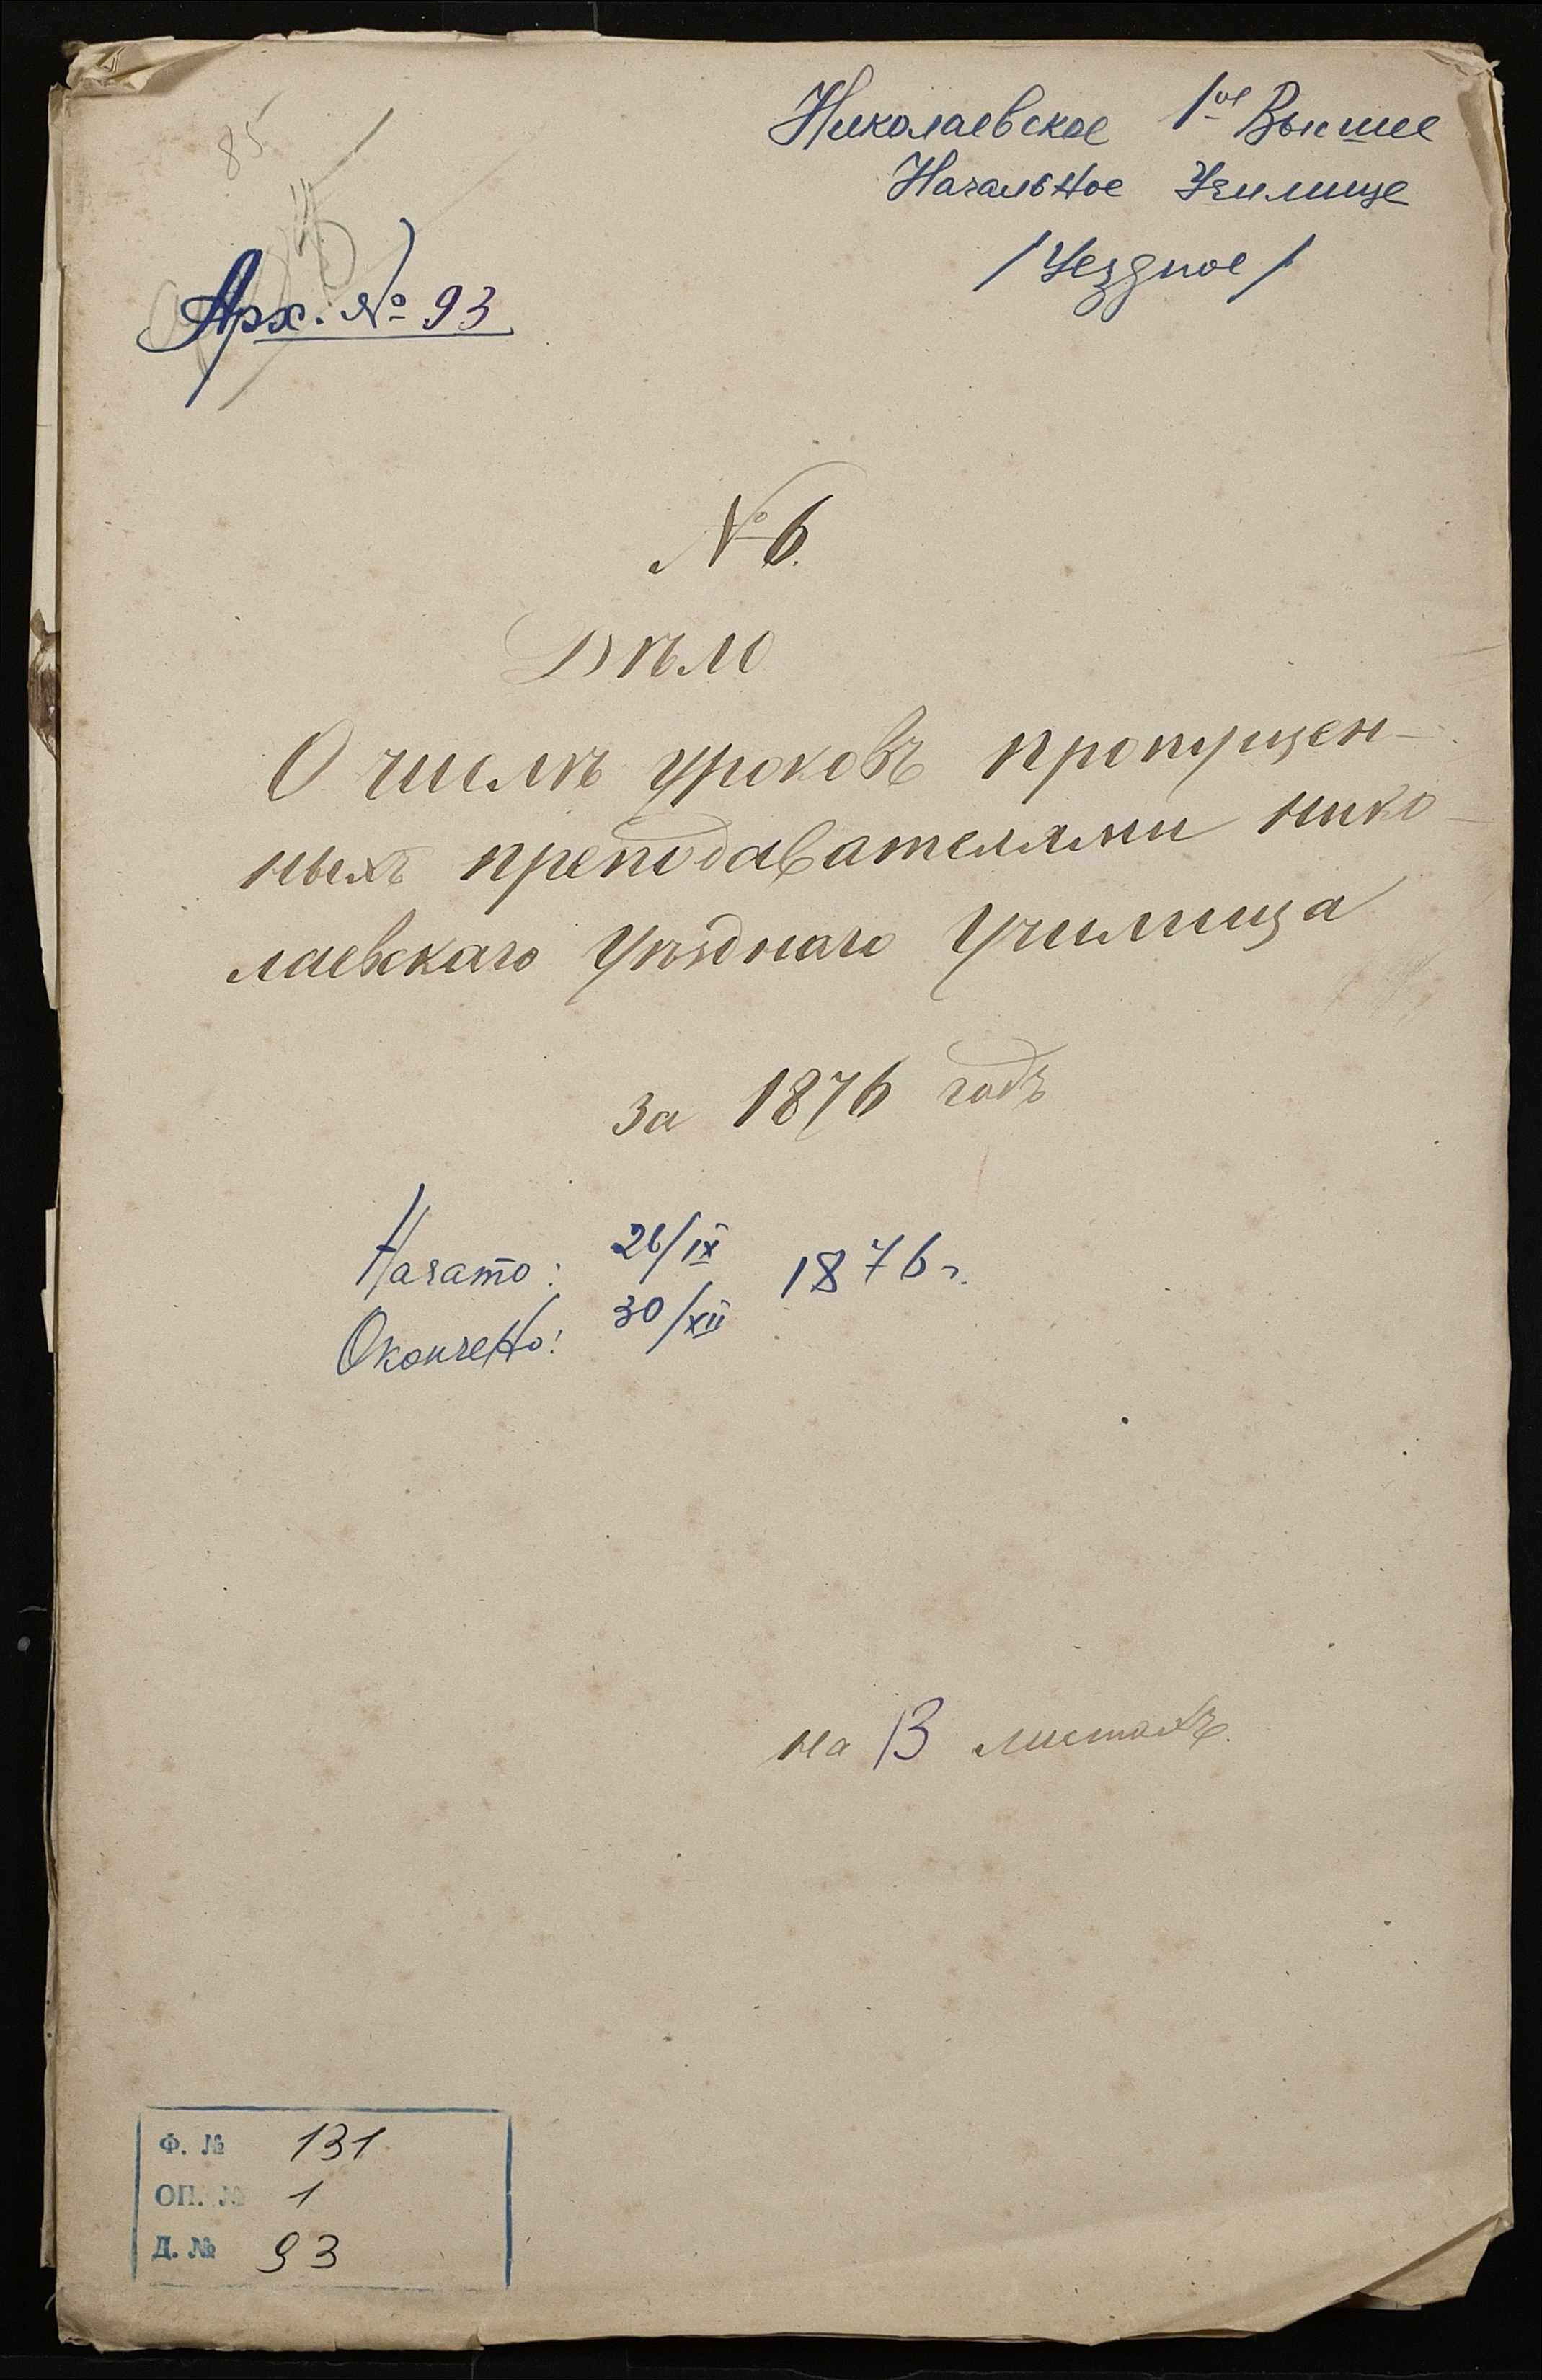 Николаевское 1ое Высшее
Начальное Училище
/Уездное/
85
Арх. № 93
№ 6.
Дѣло
О числѣ уроковъ пропущен-
ныхъ преподавателями Нико-
лаевскаго Уѣзднаго Училища
за 1876 годъ
Начато: 26/IX 1876 г.
Окончено: 30/XII
на 13 листахъ.
Ф. № 131
ОП. № 1
Д. № 93